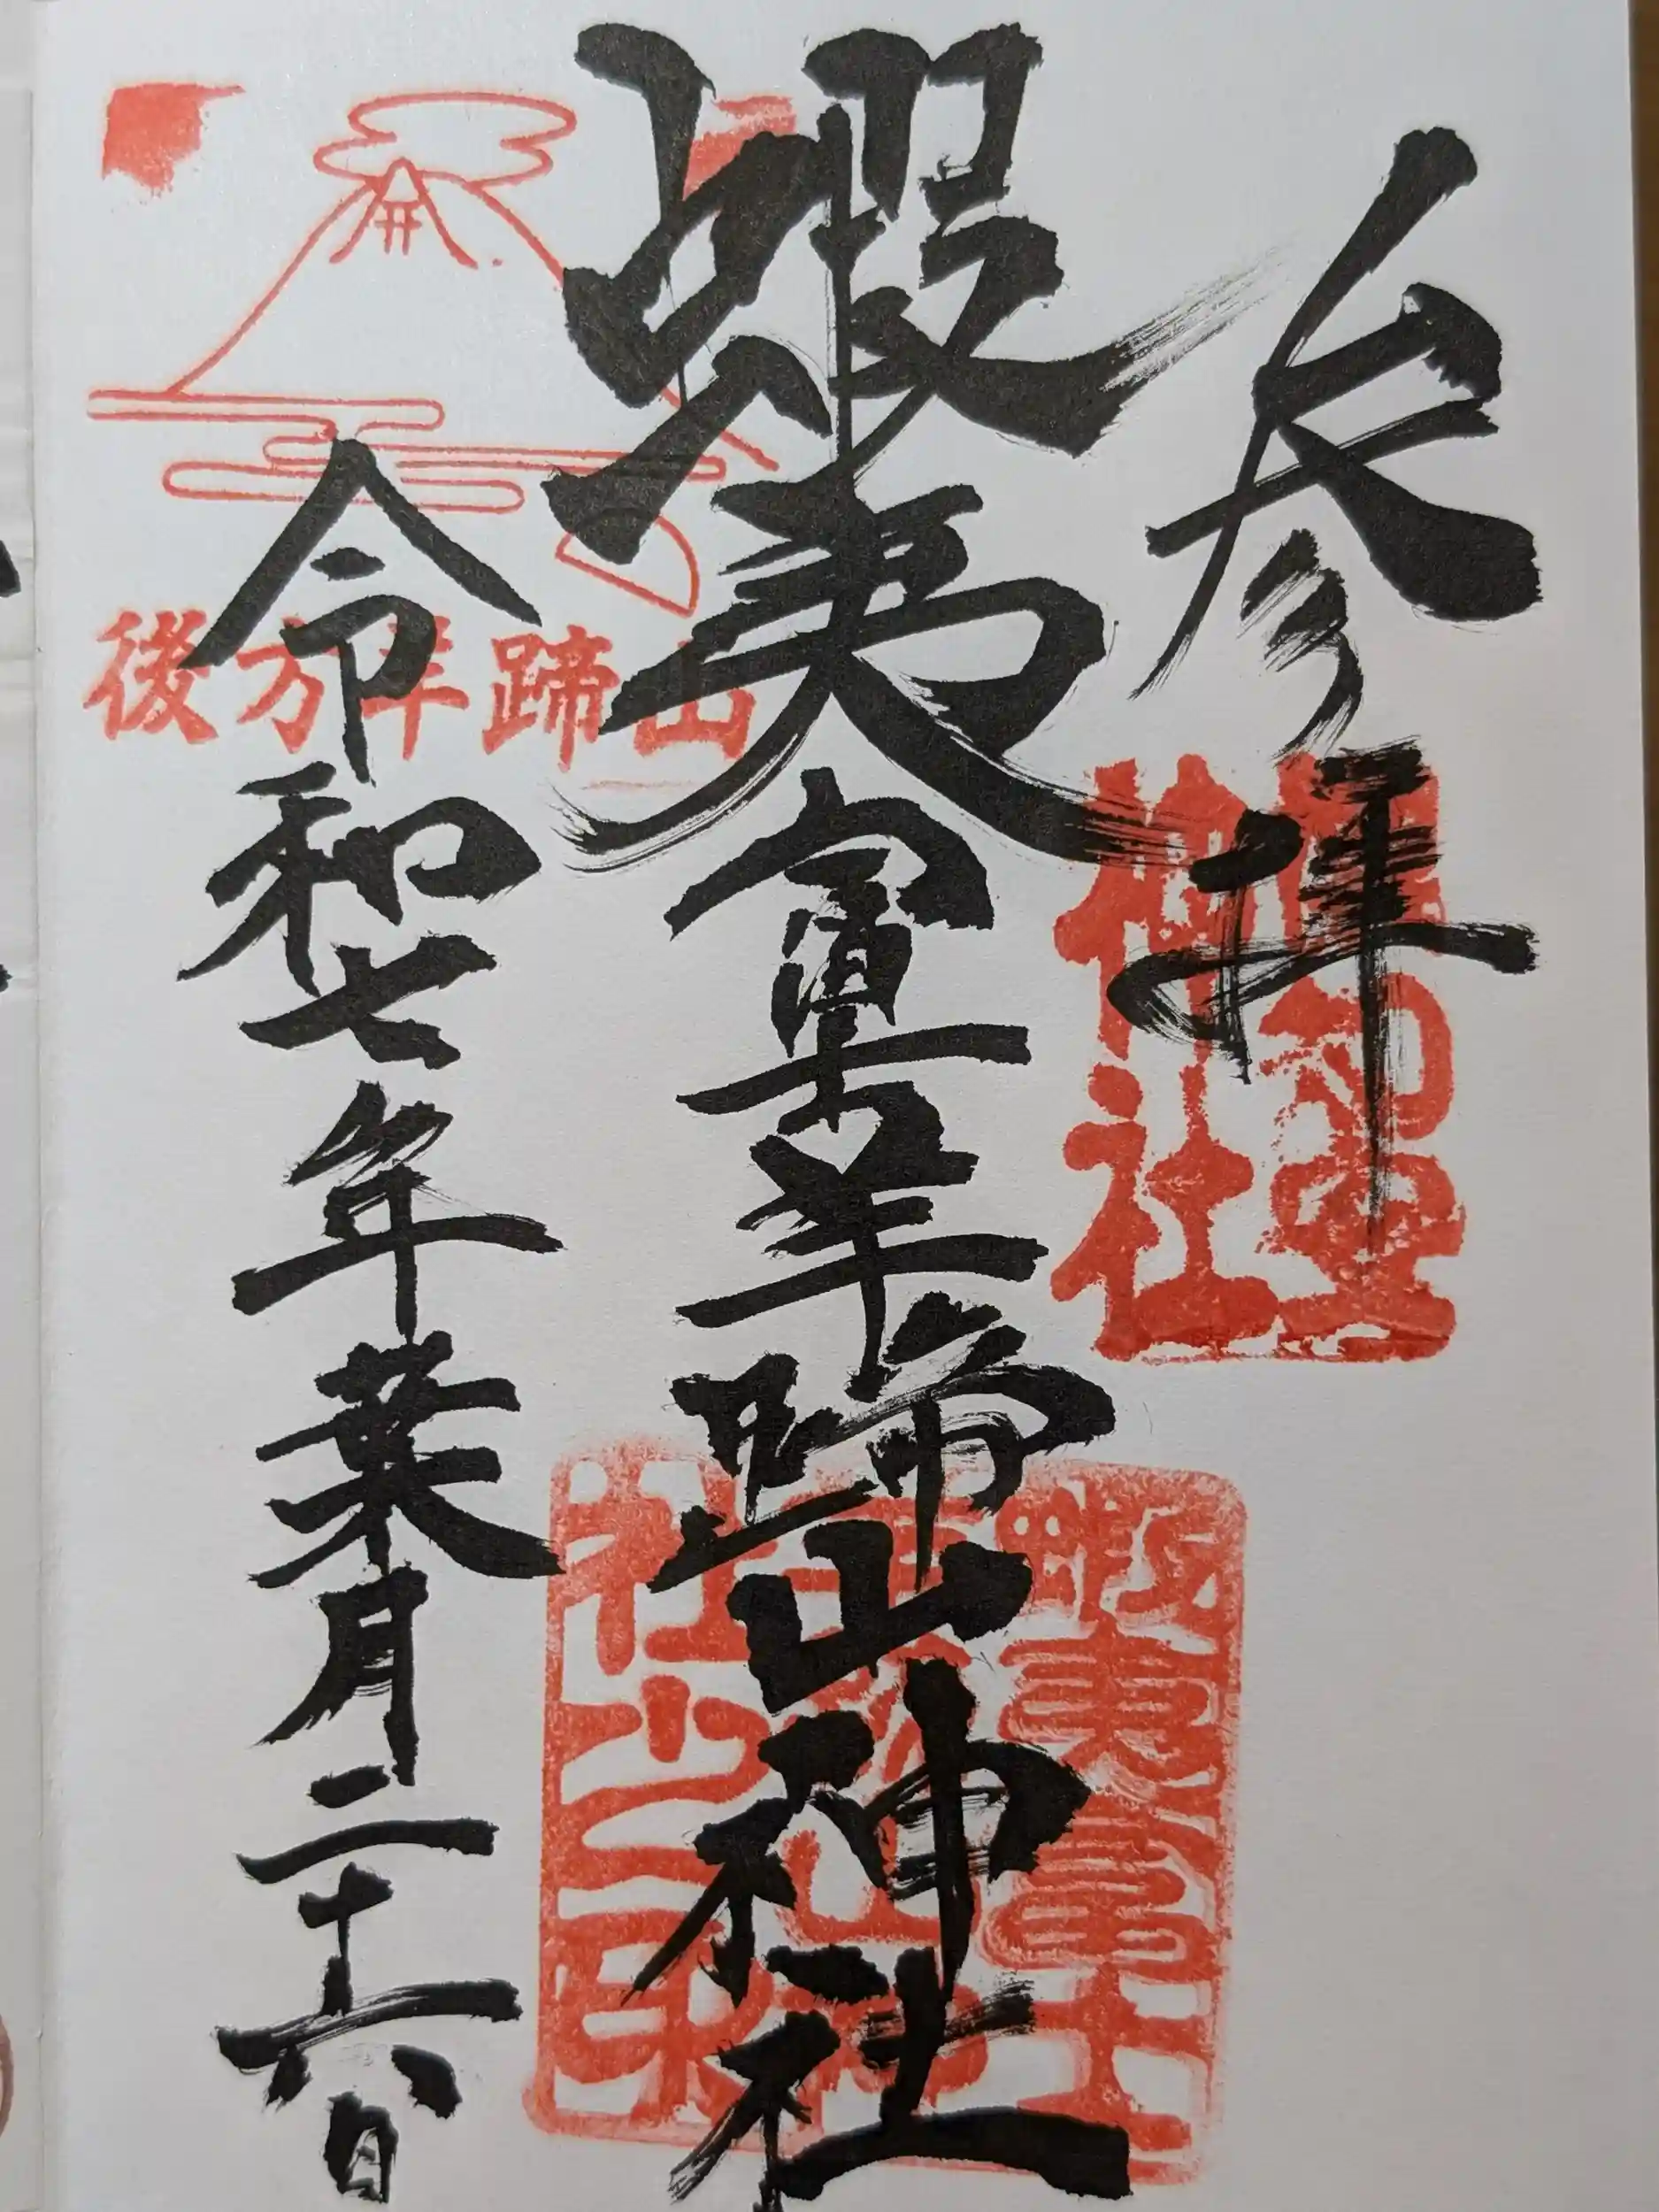 参拝
蝦夷富士羊蹄山神社
令和七年葉月二十六日
後方羊蹄山
神社
蝦夷富士
社之印